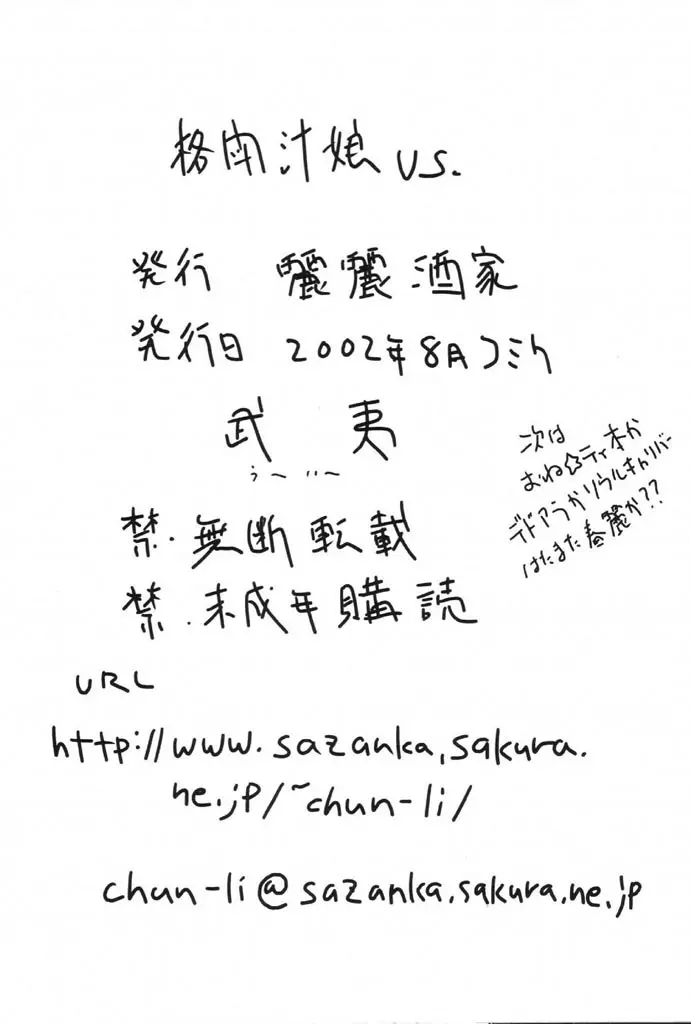 格肉汁娘 vs.
発行 麗麗酒家
発行日 2002年8月コミケ
武夷
うーいー
次は
おね☆ティ本か
デドアラかソウルキャリバー
はたまた春麗か??
禁・無断転載
禁・未成年購読
URL
http://www.sazanka.sakura.
ne.jp/~chun-li/
chun-li@sazanka.sakura.ne.jp